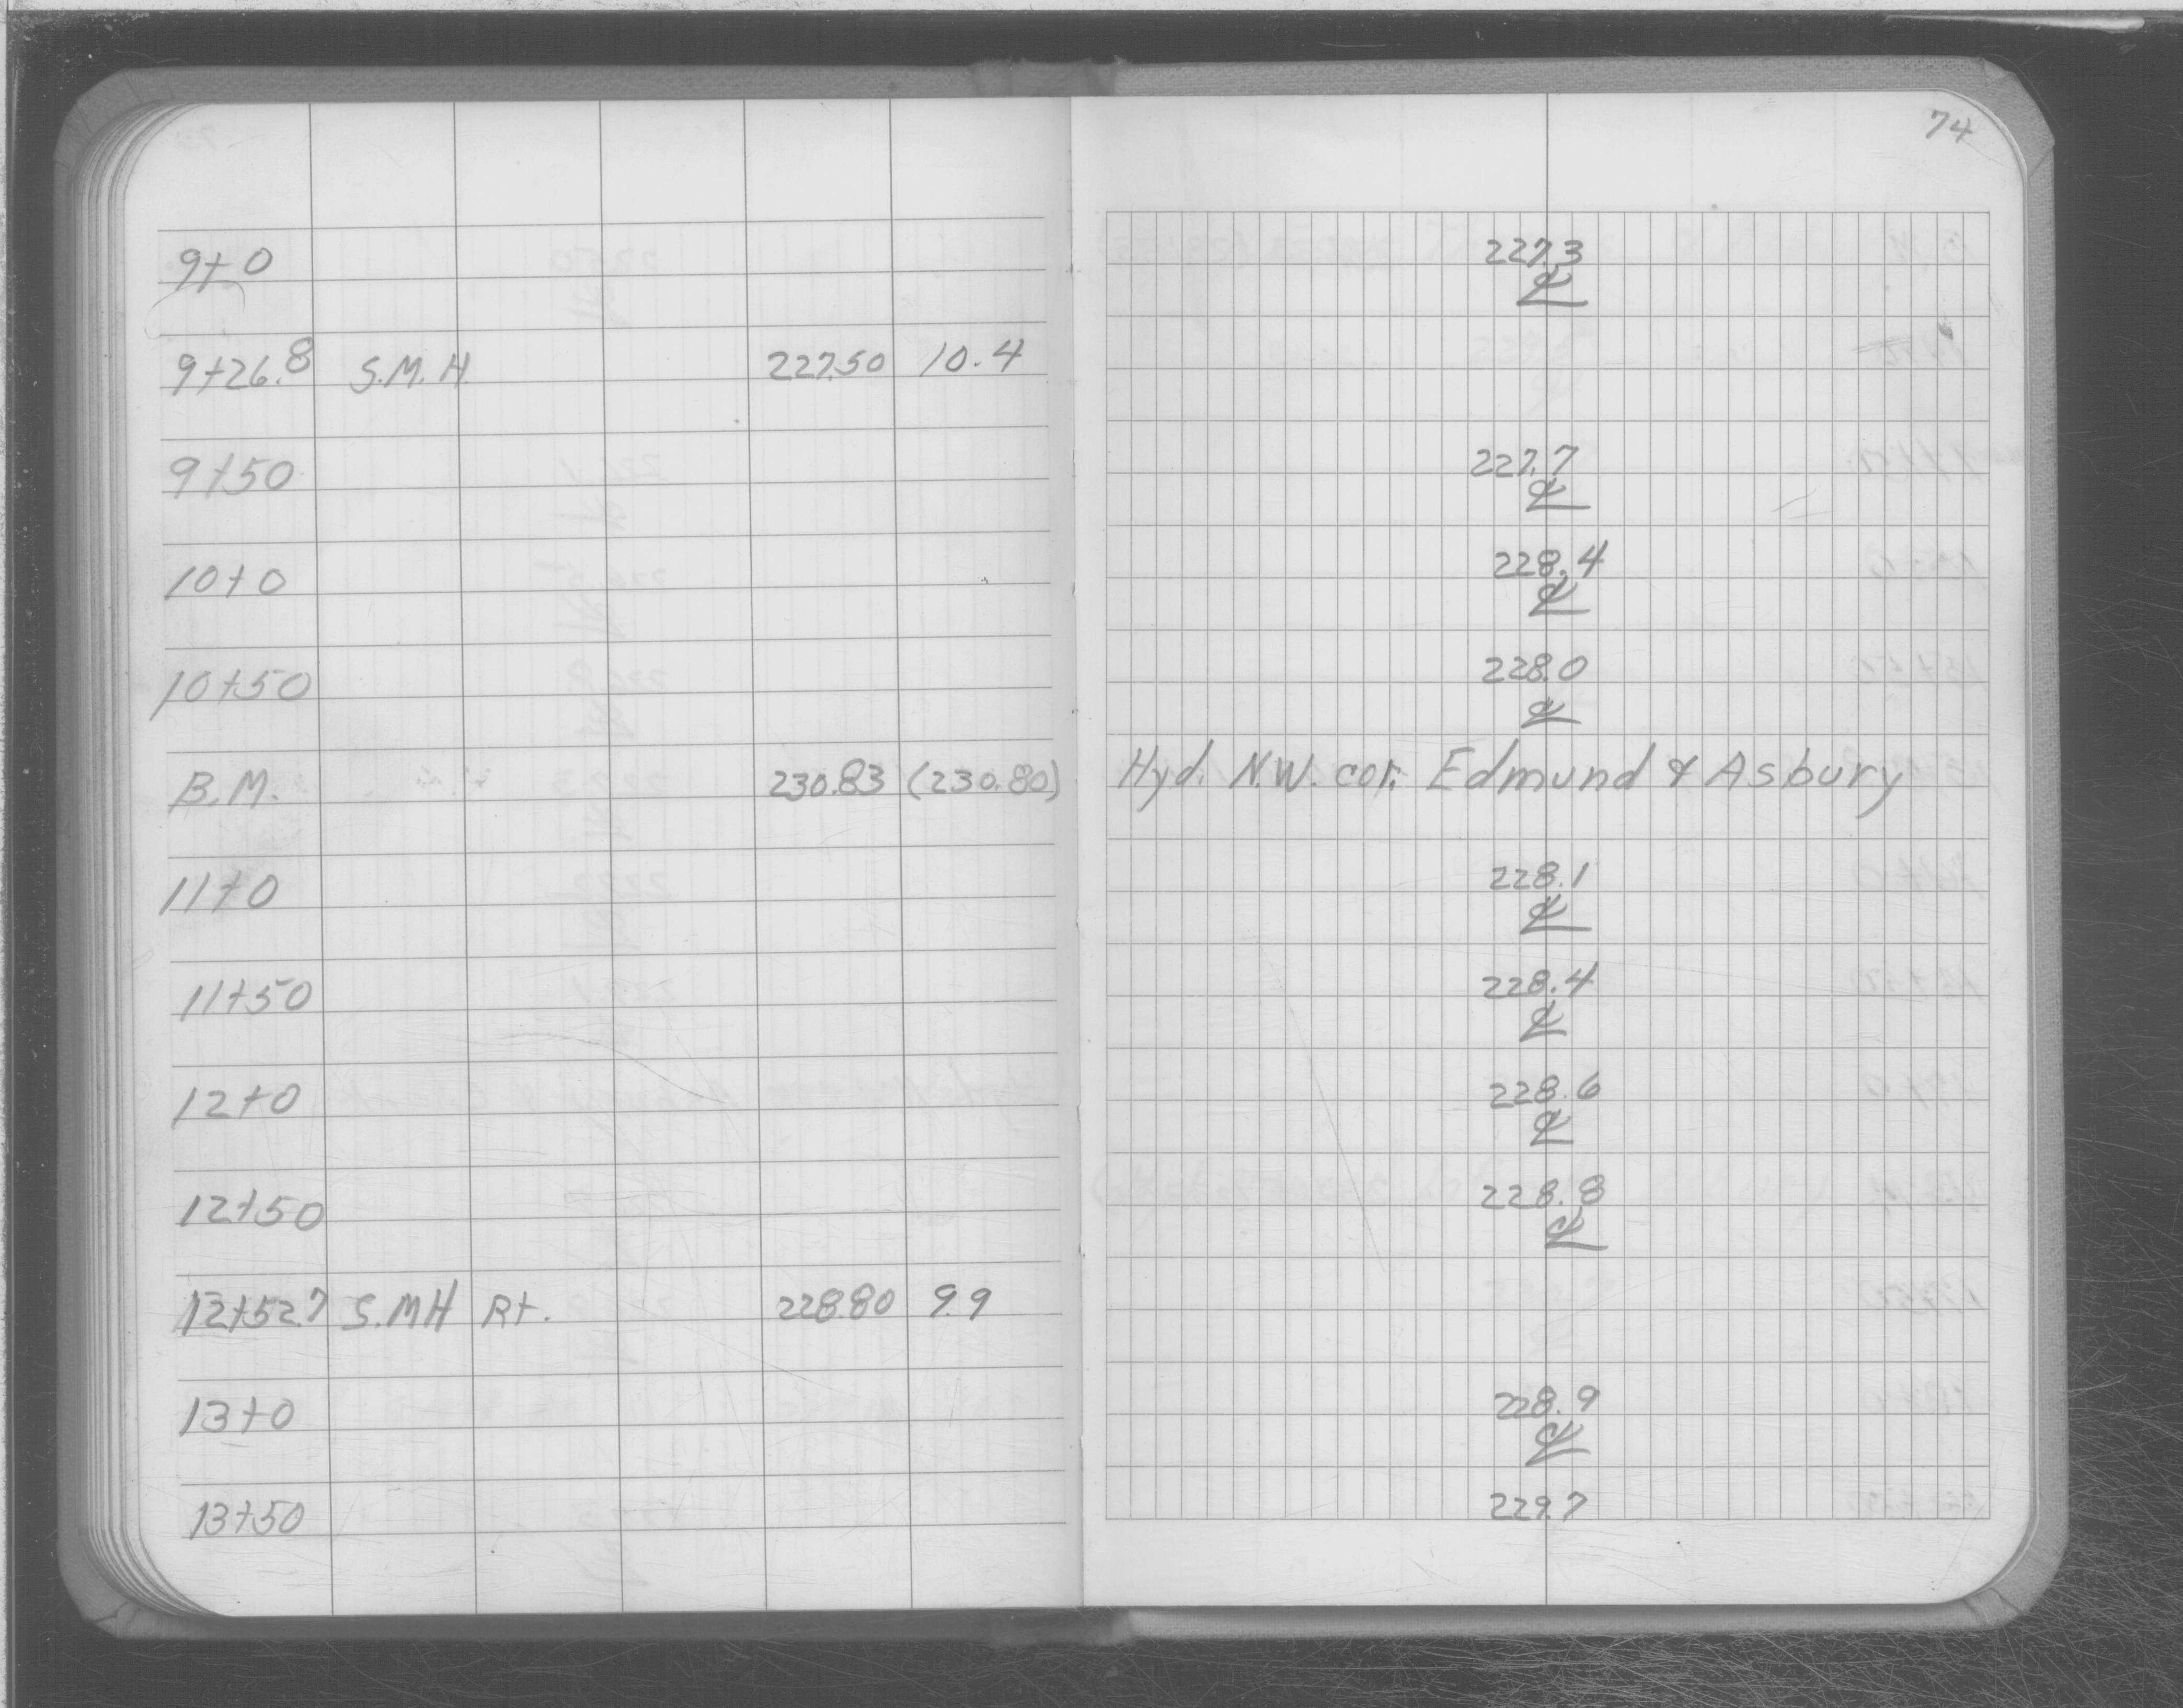 74
9+0 227.3
℄
9+26.8 S.M.H. 227.50 10.4
9+50 227.7
℄
10+0 228.4
℄
10+50 228.0
℄
B.M. 230.83 (230.80) Hyd. N.W. cor. Edmund & Asbury
11+0 228.1
℄
11+50 228.4
℄
12+0 228.6
℄
12+50 228.8
℄
12+52.7 S.MH Rt. 228.80 9.9
13+0 228.9
℄
13+50 229.7